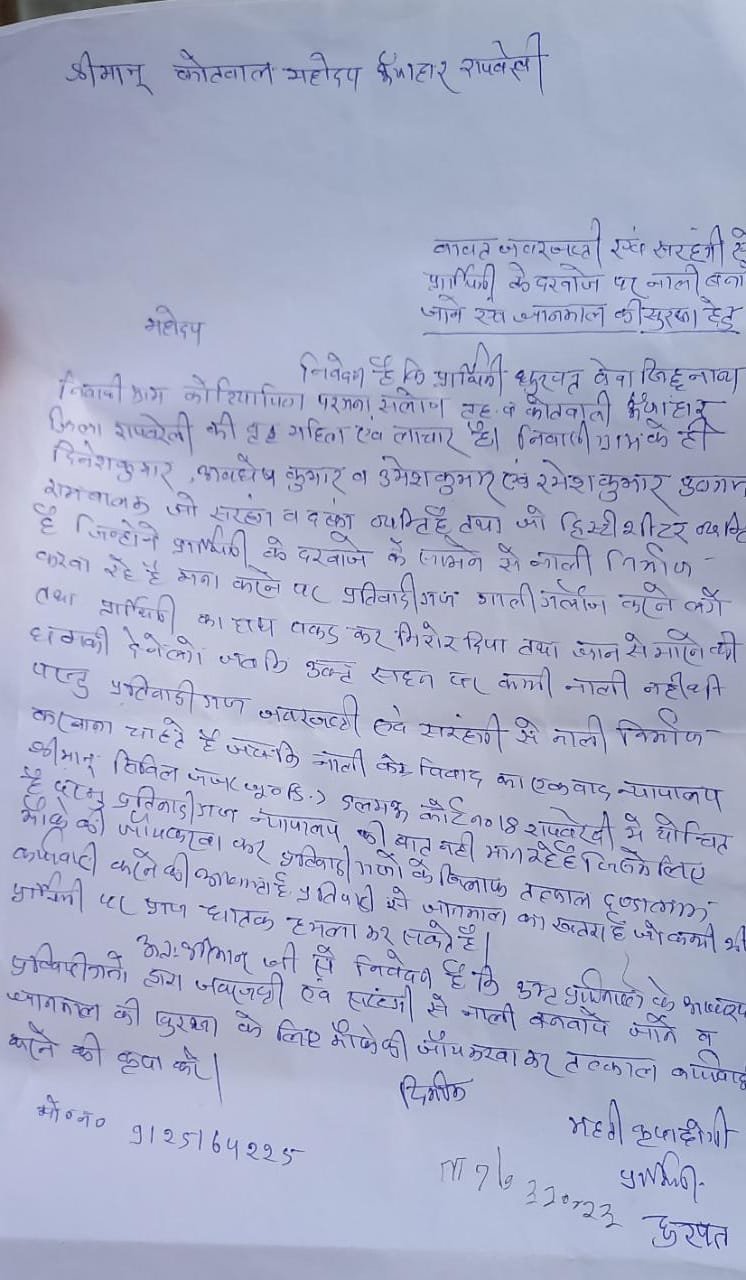 श्रीमान् कोतवाल महोदय ऊँचाहार रायबरेली
बावत जबरजस्ती एवं सरहंगी से
प्रार्थिनी के दरवाजे पर नाली बना
जाने एवं जानमाल की सुरक्षा हेतु
महोदय
निवेदन है कि प्रार्थिनी धुरपत बेवा
निवासी ग्राम परगना सलोन तह. व कोतवाली ऊँचाहार
जिला रायबरेली की वृद्ध महिला एवं लाचार है। निवासी ग्राम के ही
दिनेशकुमार, अवधेष कुमार व उमेशकुमार एवं रमेशकुमार
रामबालक जो सरहंग व दबंग व्यक्ति है तथा जो हिस्ट्रीशीटर
है जिन्होने प्रार्थिनी के दरवाजे के सामने से नाली निर्माण
करवा रहे है मना करने पर प्रतिवादीगण गाली गलौज करने लगे
तथा प्रार्थिनी का हाथ पकड कर मिरोर दिया तथा जान से मारने की
धमकी देने लगे जबकि उक्त स्थान पर कभी नाली नही थी
परन्तु प्रतिवादीगण जबरजस्ती एवं सरहंगी से नाली निर्माण
करवाना चाहते है जबकि नाली के विवाद का एक वाद न्यायालय
श्रीमान् सिविल जज (जू०डि०) डलमऊ कोर्ट न० 18 रायबरेली मे योचित
है परन्तु प्रतिवादीगण न्यायालय की बात नही मान रहे है जिसके लिए
मौके की जाँच करवा कर प्रतिवादीगणों के खिलाफ तत्काल
कार्यवाही करने की आवश्यकता है प्रतिवादी से जानमाल का खतरा है जो कभी भी
प्रार्थिनी पर प्राण घातक हमला कर सकते है।
अतः श्रीमान् जी से निवेदन है कि उक्त के
प्रतिवादीगणो द्वारा जबरजस्ती एवं सरहंगी से नाली बनवाये जाने व
जानमाल की सुरक्षा के लिए मौके की जाँच करवा कर तत्काल कार्यवाही
करने की कृपा करें।
दिनांक
महती कृपा होगी
मो०न० 9125164225
प्रार्थिनी
धुरपत